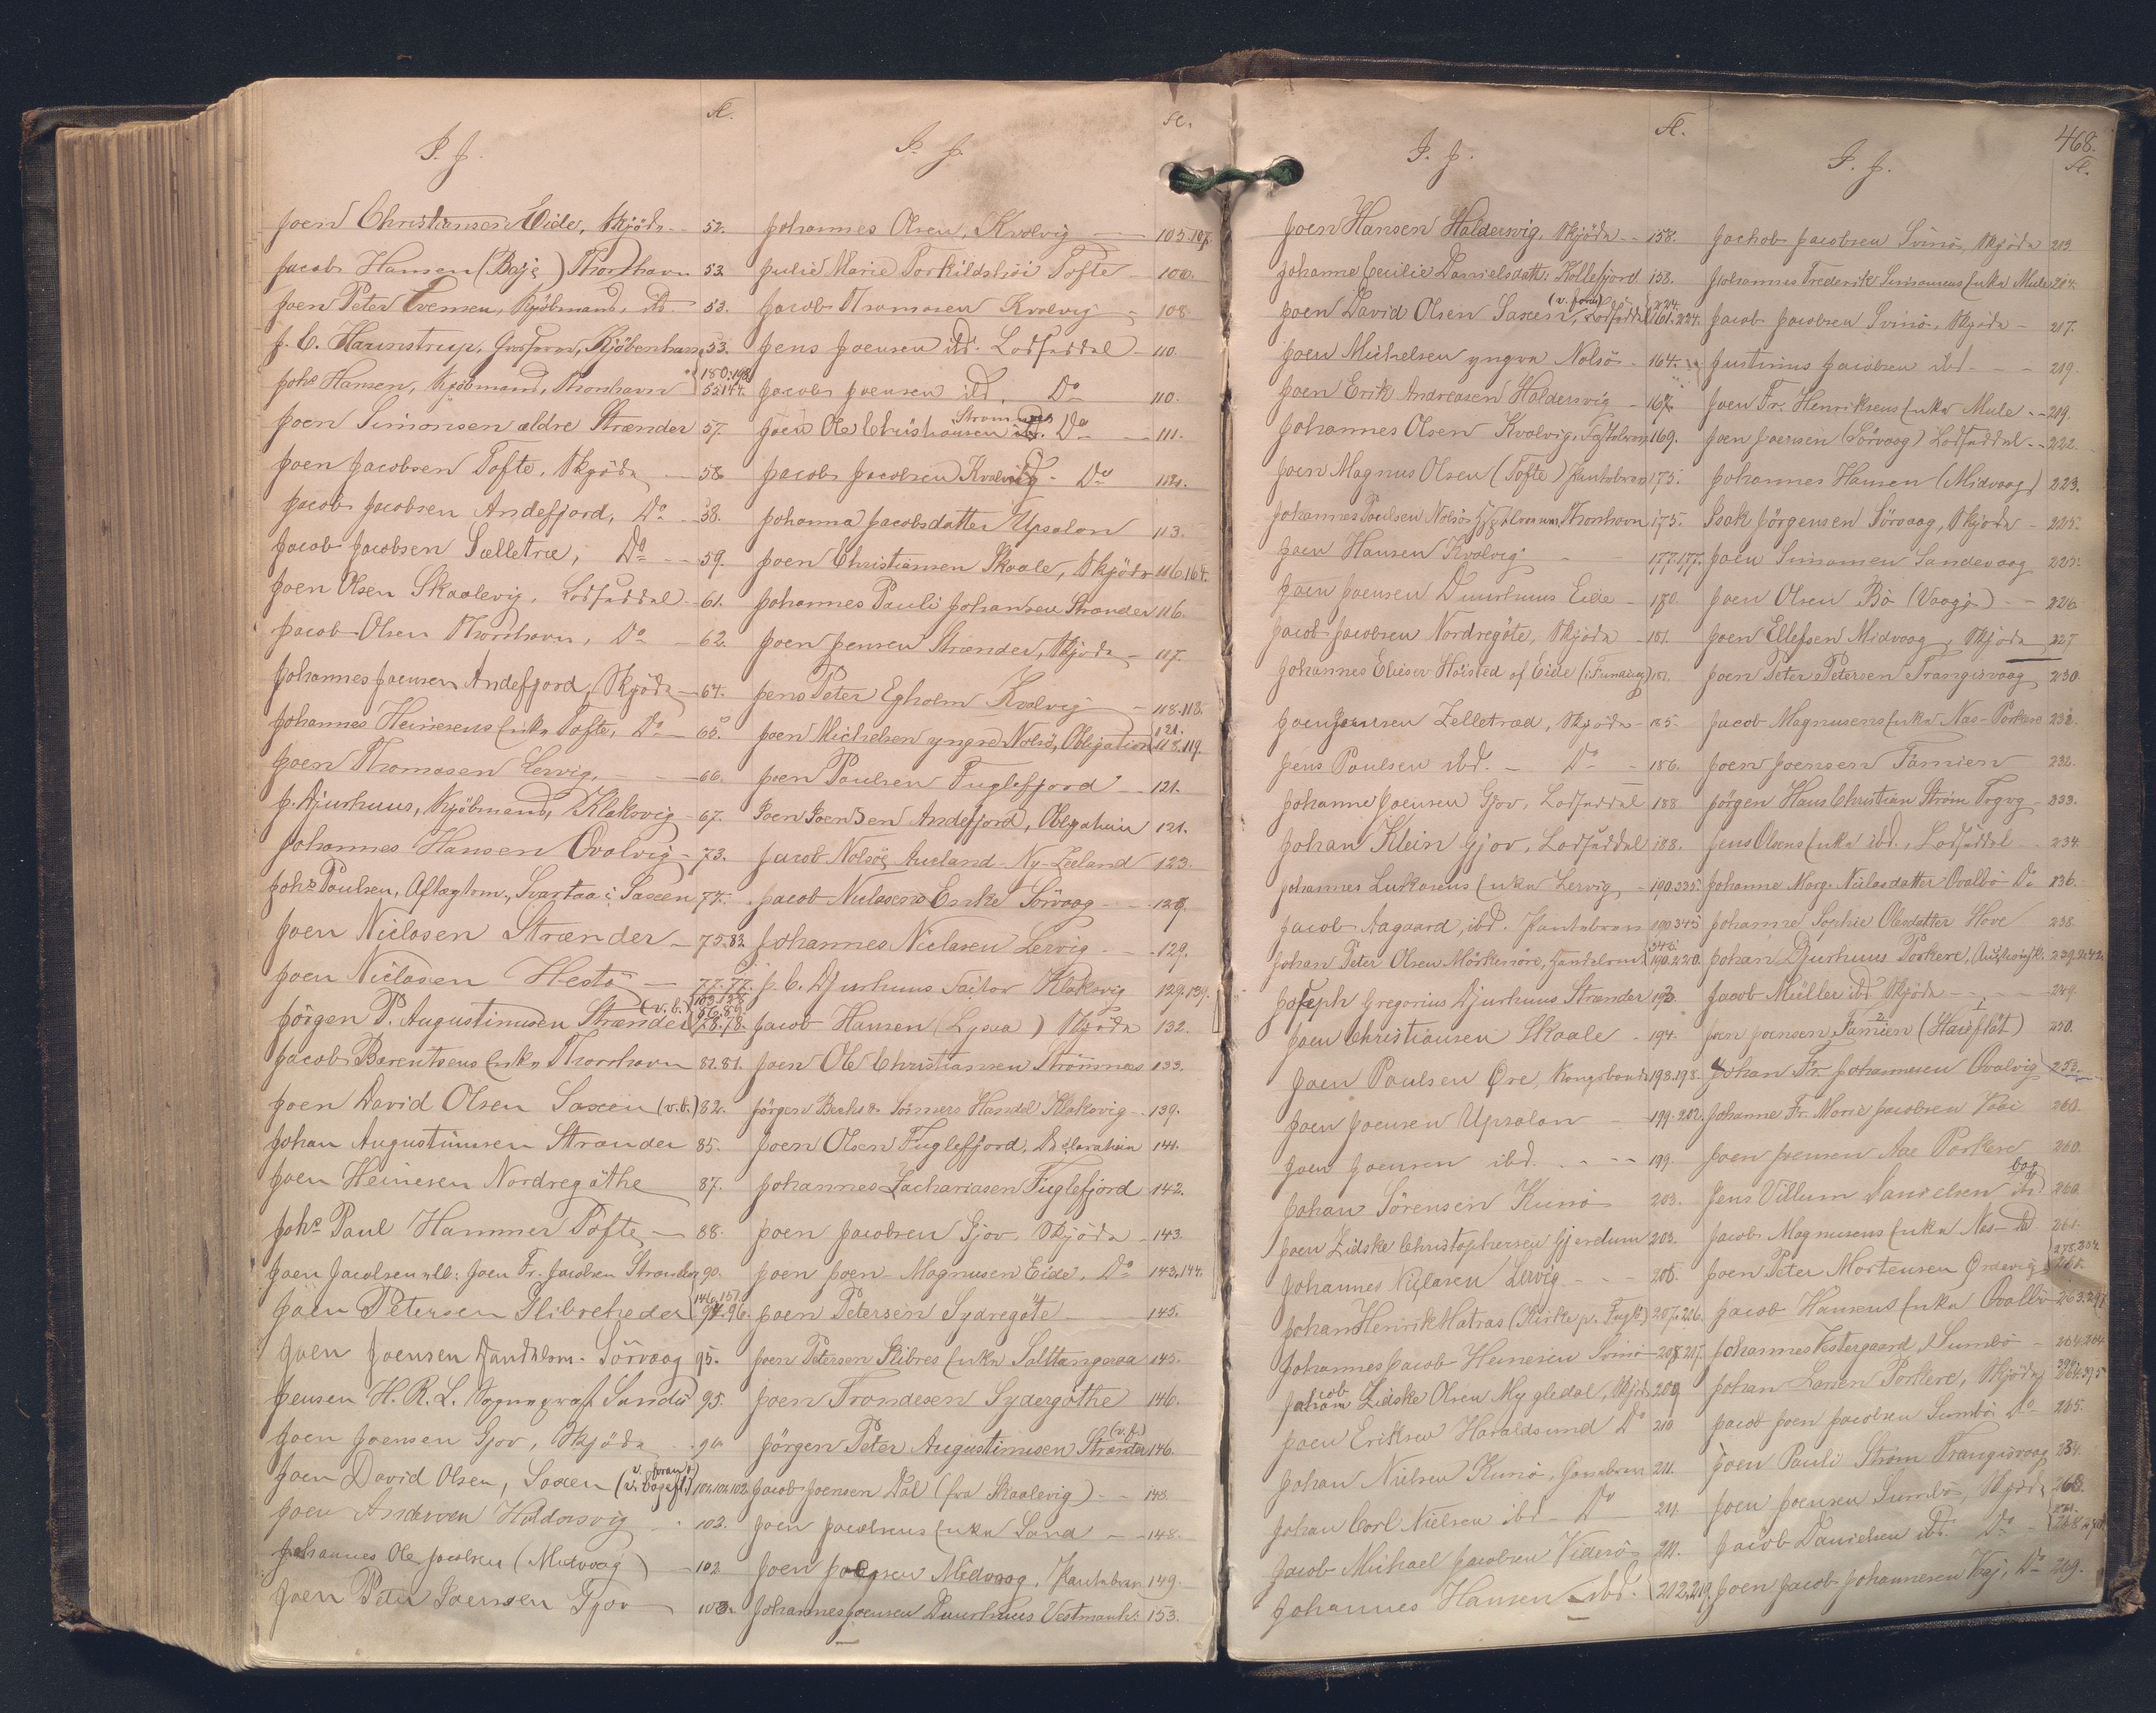 I. J.
Joen Christiansen Eide, Skjöde 52.
Jacob Hansen (Böje) Thorshavn 53
Joen Peter Evensen, Kjöbmand, ibd. 53.
J. C. Havnstrup, Kjöbenhavn 53.
Johs Hansen, Kjöbmand, Thorshavn 55.144. 180.198
Joen Simonsen ældre Strænder 57.
Joen Jacobsen Tofte, Skjöde 58
Jacob Jacobsen Andefjord, Do 58.
Jacob Jacobsen Selletræ, Do 59.
Joen Olsen Skaalevig, Lodsseddel 61.
Jacob Olsen Thorshavn, Do 62.
Johannes Joensen Andefjord, Skjöde 64.
Johannes Heinesens Enke Tofte, Do 65.
Joen Thomasen Lervig, 66.
J. Djurhuus, Kjöbmand, Klaksvig 67.
Johannes Hansen Qvalvig 73.
Johs Poulsen, Aftægtsm., Svartaa i Saxen 74.
Joen Niclasen Strænder 75.83.
Joen Niclasen Hestö 77.77.
Jörgen P. Augustinusen Strænder (v.b.) 78.78.
Jacob Barentsens Enke Thorshavn 82.81.
Joen David Olsen Saxen (v.b.) 82.
Johan Augustinusen Strænder 85.
Joen Heinesen Nordregöthe 87.
Johs Paul Hammer Tofte 88.
Joen Jacobsen Joen Fr. Jacobsen Strænder 90.
Joen Petersen Glibreheder 94.96. 146.151.
Joen Joensen Sörvaag 95.
Jensen H. R. L. Sognepræst Sandö 95.
Joen Joensen Gjov, Skjöde 96.
Joen David Olsen, Saxen 101.101.102.
Joen Andersen Haldorsvig 102.
Johannes Ole Jacobsen (Midvaag) 102
Joen Peter Joensen Gjov 103.
I. J.
Johannes Olsen, Kvalvig 105.107.
Julie Marie Torkildshöi Tofte 106.
Jacob Thomasen Kvalvig 108
Jens Joensen ibd. Lodsseddel 110.
Jacob Joensen ibd. Do 110.
Joen Ole Christiansen Strömnes Do 111.
Jacob Jacobsen Kvalvig Do 112.
Johanna Jacobsdatter Upsalon 113.
Joen Christiansen Skaale, Skjöde 116.164.
Johannes Pauli Johansen Strænder 116.
Joen Jensen Strænder, Skjöde 117.
Jens Peter Egholm Kvalvig 118.118.
Joen Michelsen yngre Nolsö, Obligation 118.119. 121.
Joen Poulsen Fuglefjord 121.
Joen Joensen Andefjord, Obligation 121.
Jacob Nolsöe, Aucland Ny-Zeeland 123.
Jacob Niclasens Enke Sörvaag 129.
Johannes Niclasen Lervig 129.
J. C. Djurhuus Sailor Klaksvig 129.139.
Jacob Hansen Skjöde 132.
Joen Ole Christiansen Strömnæs 133.
Jörgen Handel Klaksvig 139.
Joen Olsen Fuglefjord, Declaration 141.
Johannes Zachariasen Fuglefjord 142.
Joen Jacobsen Gjov, Skjöde 143
Joen Joen Magnusen Eide, Do 143.144.
Joen Petersen Sydregöte 145.
Joen Petersen Glibres Enke Salttangeraa 145.
Joen Trondesen Sydergöthe 146.
Jörgen Peter Augustinusen Strænder (v.b.) 146.
Jacob Joensen Dal (fra Skaalevig) 148
Joen Jacobsens Enke Sand 148.
Joen Joensen Midvaag, Pantebrev 149.
Johannes Joensen Duurhuus Vestmanh. 153.
I. J.
Joen Hansen Haldersvig, Skjöde 158.
Johanne Cecilie Danielsdatt. Kollefjord 158.
Joen David Olsen Saxen, Lodsseddel 161.224.
Joen Michelsen yngre Nolsö 164.
Joen Erik Andreasen Haldersvig 167.
Johannes Olsen Kvalvig, 169.
Joen Magnus Olsen (Tofte) Pantebrev 173.
Johannes Poulsen Nolsö Thorshavn 175.
Joen Hansen Kvalvig 177.177.
Joen Joensen Duurhuus Eide 180.
Jacob Jacobsen Nordregöte, Skjöde 181.
Johannes Elieser Höisted af Eide (i Funding) 181.
Joen Joensen Zelletræd, Skjöde 185.
Jens Poulsen ibd. Do 186.
Johanne Joensen Gjov, Lodsseddel 188.
Johan Klein Gjov, Lodsseddel 188.
Johannes Lukasens Enke Lervig, 190.335.
Jacob Aagaard, ibd. Pantebrev 190.345
Johan Peter Olsen Mörkenöre, 190.220.
Joseph Gregorius Djurhuus Strænder 193.
Joen Christiansen Skaale 194.
Joen Poulsen Öre, Kongsbonde 198.198.
Joen Joensen Upsalon 199.202.
Joen Joensen ibd. 199.
Johan Sörensen Kunö 203.
Joen Zidske Christophersen Gjerdum 203.
Johannes Niclasen Lervig 206.
Johan Henrik Matras 207.206.
Johannes Jacob Heinesen Svinö 208.207.
Jacob Zidske Olsen Mygledal, Skjöde 209
Joen Eriksen Haraldsund Do 210
Johan Nielsen Kunö, Gavebrev 211.
Johan Carl Nielsen ibd Do 211.
Jacob Michael Jacobsen Viderö 211.
Johannes Hansen ibd. 212.219.
468.
I. J.
Jachob Jacobsen Svinö, Skjöde 213
Johannes Frederik Simonsens Enke Mule 214.
Jacob Jacobsen Svinö, Skjöde 217.
Justinus Jacobsen ibd 219.
Joen Fr. Henriksens Enke Mule 219.
Joen Joensen (Sörvaag) Lodsseddel 222.
Johannes Hansen (Midvaag) 223.
Isak Jörgensen Sörvaag, Skjöde 225.
Joen Simonsen Sandevaag 225.
Joen Olsen Bö (Vaagö) 226
Joen Ellefsen Midvaag, Skjöde 227
Joen Peter Petersen Trangisvaag 230.
Jacob Magnusens Enke Nes-Porkere 232.
Joen Joensen Famien 232.
Jörgen Hans Christian Ström 233.
Jens Olsens Enke ibd., Lodsseddel 234
Johanne Marg. Niclasdatter Qvalbö Do 236.
Johanne Sophie Olesdatter Hove 238
Johan Djurhuus Porkere, 239.242.
Jacob Müller ibd Skjöde 249.
Joen Joensen Famien 250.
Johan Fr. Johannesen Qvalvig 253.
Johanne Fr. Marie Jacobsen 260.
Joen Joensen Aae Porkere 260.
Jens Villum Danielsen 260.
Jacob Magnusens Enke Nes 261.
Joen Peter Mortensen Ördevig 261.
Jacob Hansens Enke Qvalbö 263.
Johannes Vestergaard, Sumbö 264.264
Johan Larsen Porkere, Skjöde 264.395
Jacob Joen Jacobsen Sumbö Do 265.
Joen Pauli Ström Trangisvaag 234.
Joen Joensen Sumbö, Skjöde 268.
Jacob Danielsen ibd. Do 268.
Joen Jacob Johannesen Vaj, Do 269.